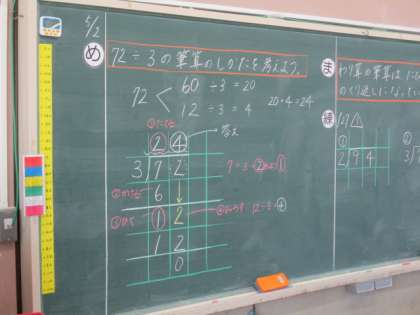 5/2
め
72÷3の筆算のしかたを考えよう。
72
60÷3=20
12÷3=4
20+4=24
①たてる
答え
2 4
3 7 2
7÷3=2あまり1
②かける
6
③ひく
1 2
④おろす 12÷3=4
1 2
0
ま
わり算の筆算は
のくり返し
練
①
2 9 4
②
3